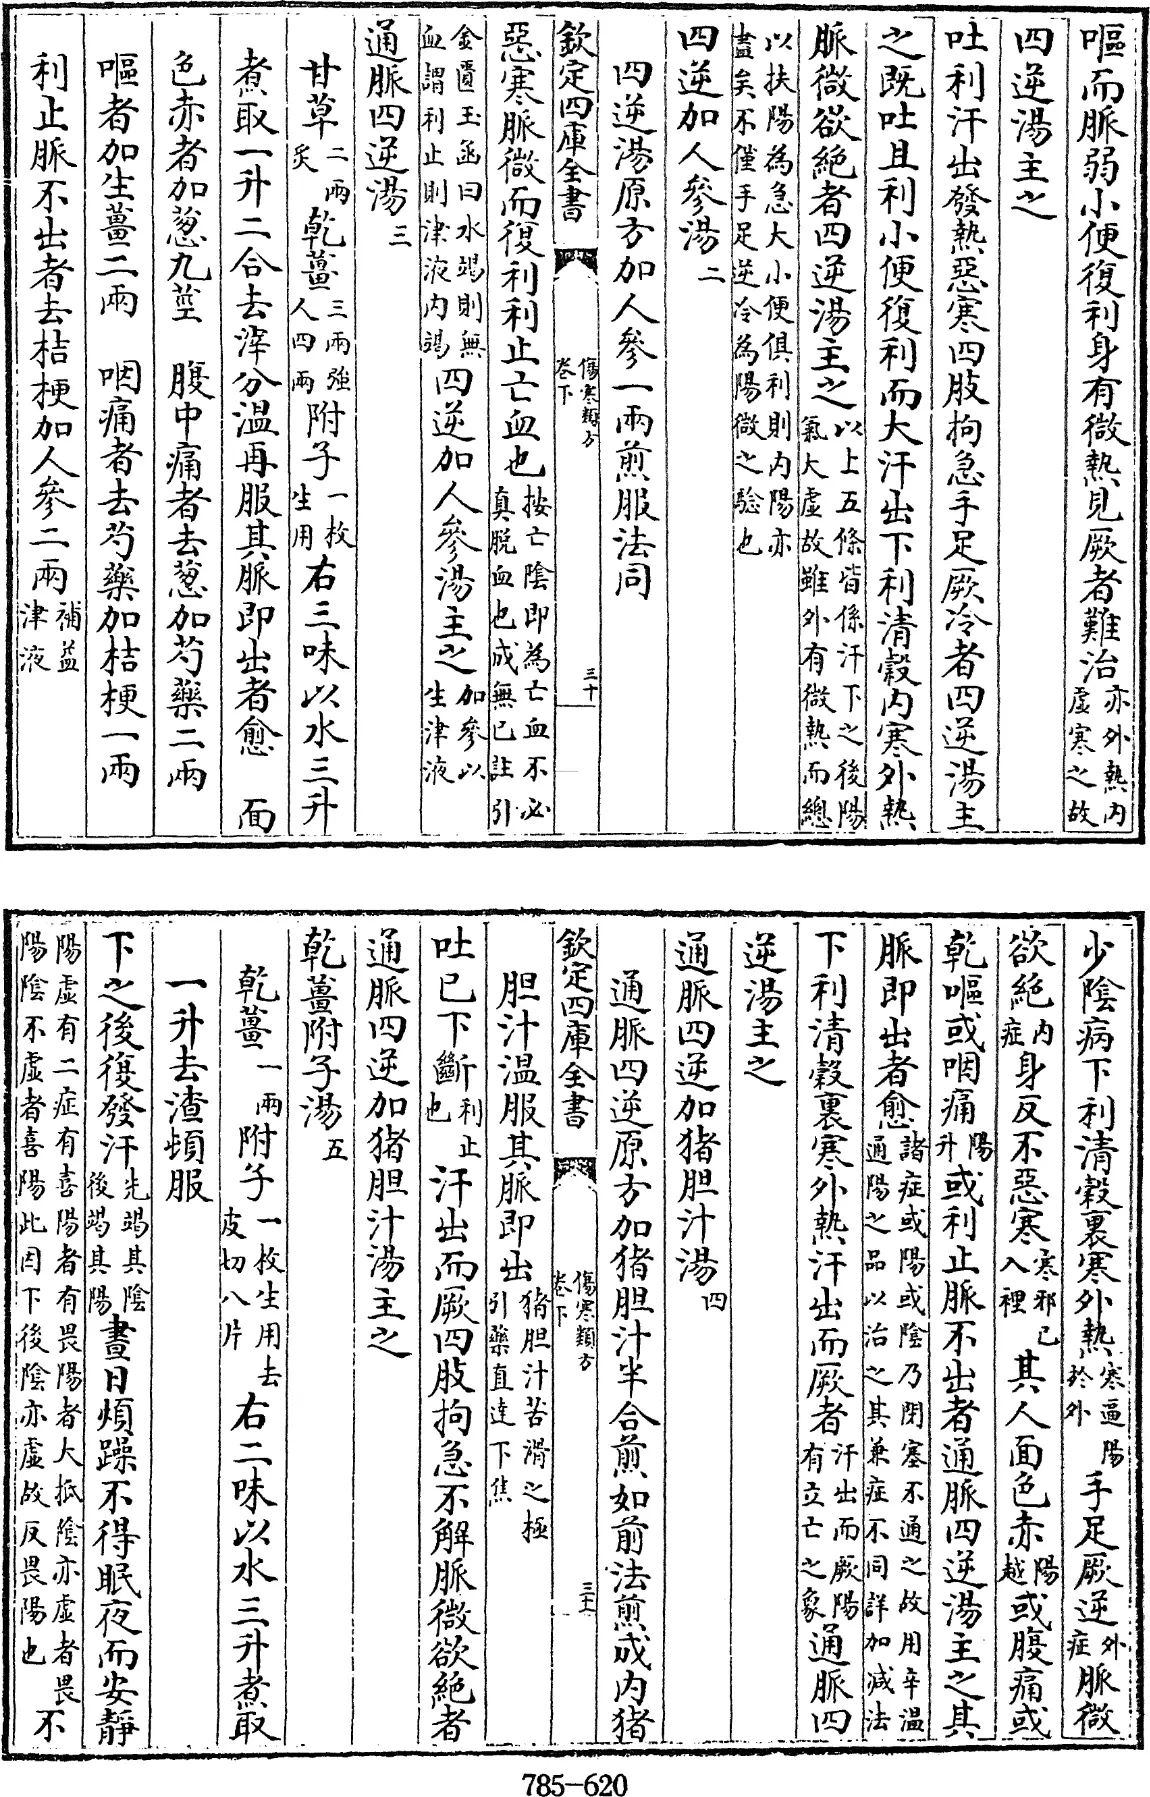 嘔而脈弱小便復利身有微熱見厥者難治亦外熱内虛寒之故
四逆湯主之
吐利汗出發熱惡寒四肢拘急手足厥冷者四逆湯主
之既吐且利小便復利而大汗出下利清穀内寒外熱
脈微欲絶者四逆湯主之以上五條皆係汗下之後陽氣大虛故雖外有微熱而總
以扶陽為急大小便俱利則内陽亦盡矣不僅手足逆冷為陽微之驗也
四逆加人參湯二
四逆湯原方加人參一兩煎服法同
欽定四庫全書 傷寒類方卷下 三十
惡寒脈微而復利利止亡血也按亡陰即為亡血不必真脫血也成無已註引
金匱玉函曰水竭則無血謂利止則津液内竭四逆加人參湯主之加參以生津液
通脈四逆湯三
甘草二兩炙乾薑三兩強人四兩附子一枚生用右三味以水三升
煮取一升二合去滓分温再服其脈即出者愈 面
色赤者加葱九莖 腹中痛者去葱加芍藥二兩
嘔者加生薑二兩 咽痛者去芍藥加桔梗一兩
利止脈不出者去桔梗加人參二兩補益津液
少陰病下利清穀裏寒外熱寒逼陽於外手足厥逆外症脈微
欲絶内症身反不惡寒寒邪已入裡其人面色赤陽越或腹痛或
乾嘔或咽痛陽升或利止脈不出者通脈四逆湯主之其
脈即出者愈諸症或陽或陰乃閉塞不通之故用辛温通陽之品以治之其兼症不同詳加減法
下利清穀裏寒外熱汗出而厥者汗出而厥陽有立亡之象通脈四
逆湯主之
通脈四逆加猪胆汁湯四
通脈四逆原方加猪胆汁半合煎如前法煎成内猪
欽定四庫全書 傷寒類方卷下 三十一
胆汁温服其脈即出猪胆汁苦滑之極引藥直達下焦
吐已下斷利止也汗出而厥四肢拘急不解脈微欲絶者
通脈四逆加猪胆汁湯主之
乾薑附子湯五
乾薑一兩附子一枚生用去皮切八片右二味以水三升煮取
一升去渣頓服
下之後復發汗先竭其陰後竭其陽晝日煩躁不得眠夜而安靜
陽虛有二症有喜陽者有畏陽者大抵陰亦虛者畏陽陰不虛者喜陽此因下後陰亦虛故反畏陽也不
785-620